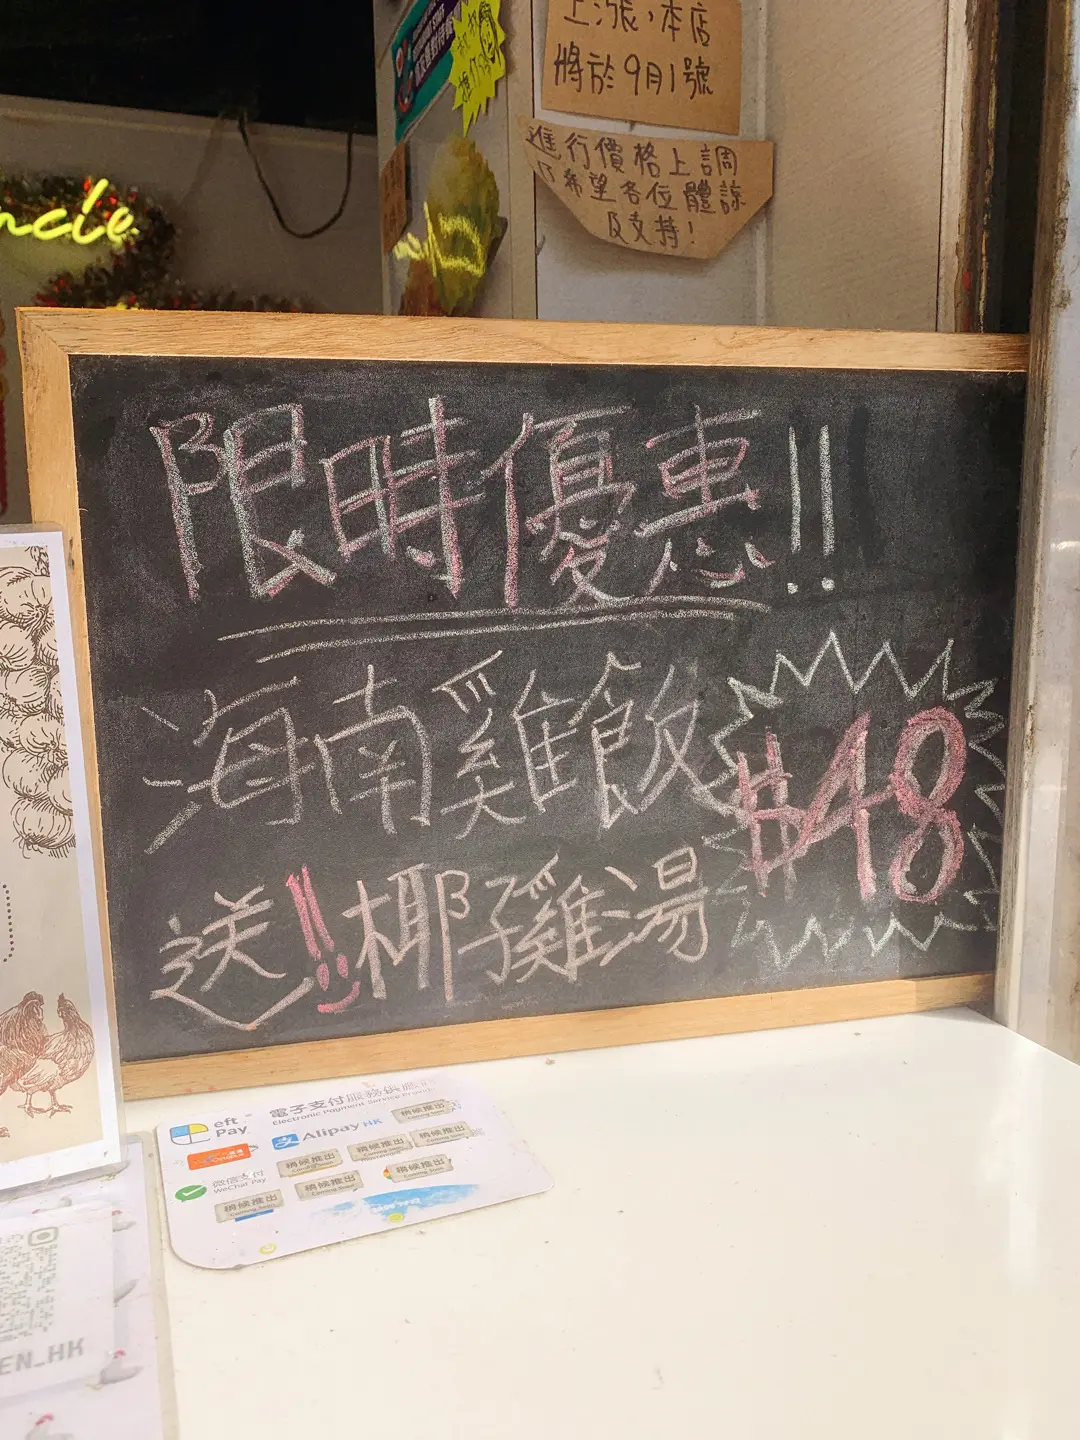 上漲，本店
將於9月1號
進行價格上調
希望各位體諒
及支持！
ncle
限時優惠!!
海南雞飯
$48
送!!椰子雞湯
eft Pay
電子支付服務供應
Electronic Payment Service Provi
Alipay HK
稍候推出
Coming Soon
稍候推出
Coming Soon
稍候推出
Coming Soon
稍候推出
Coming Soon
微信支付
WeChat Pay
稍候推出
Coming Soon
稍候推出
Coming Soon
稍候推出
EN_HK